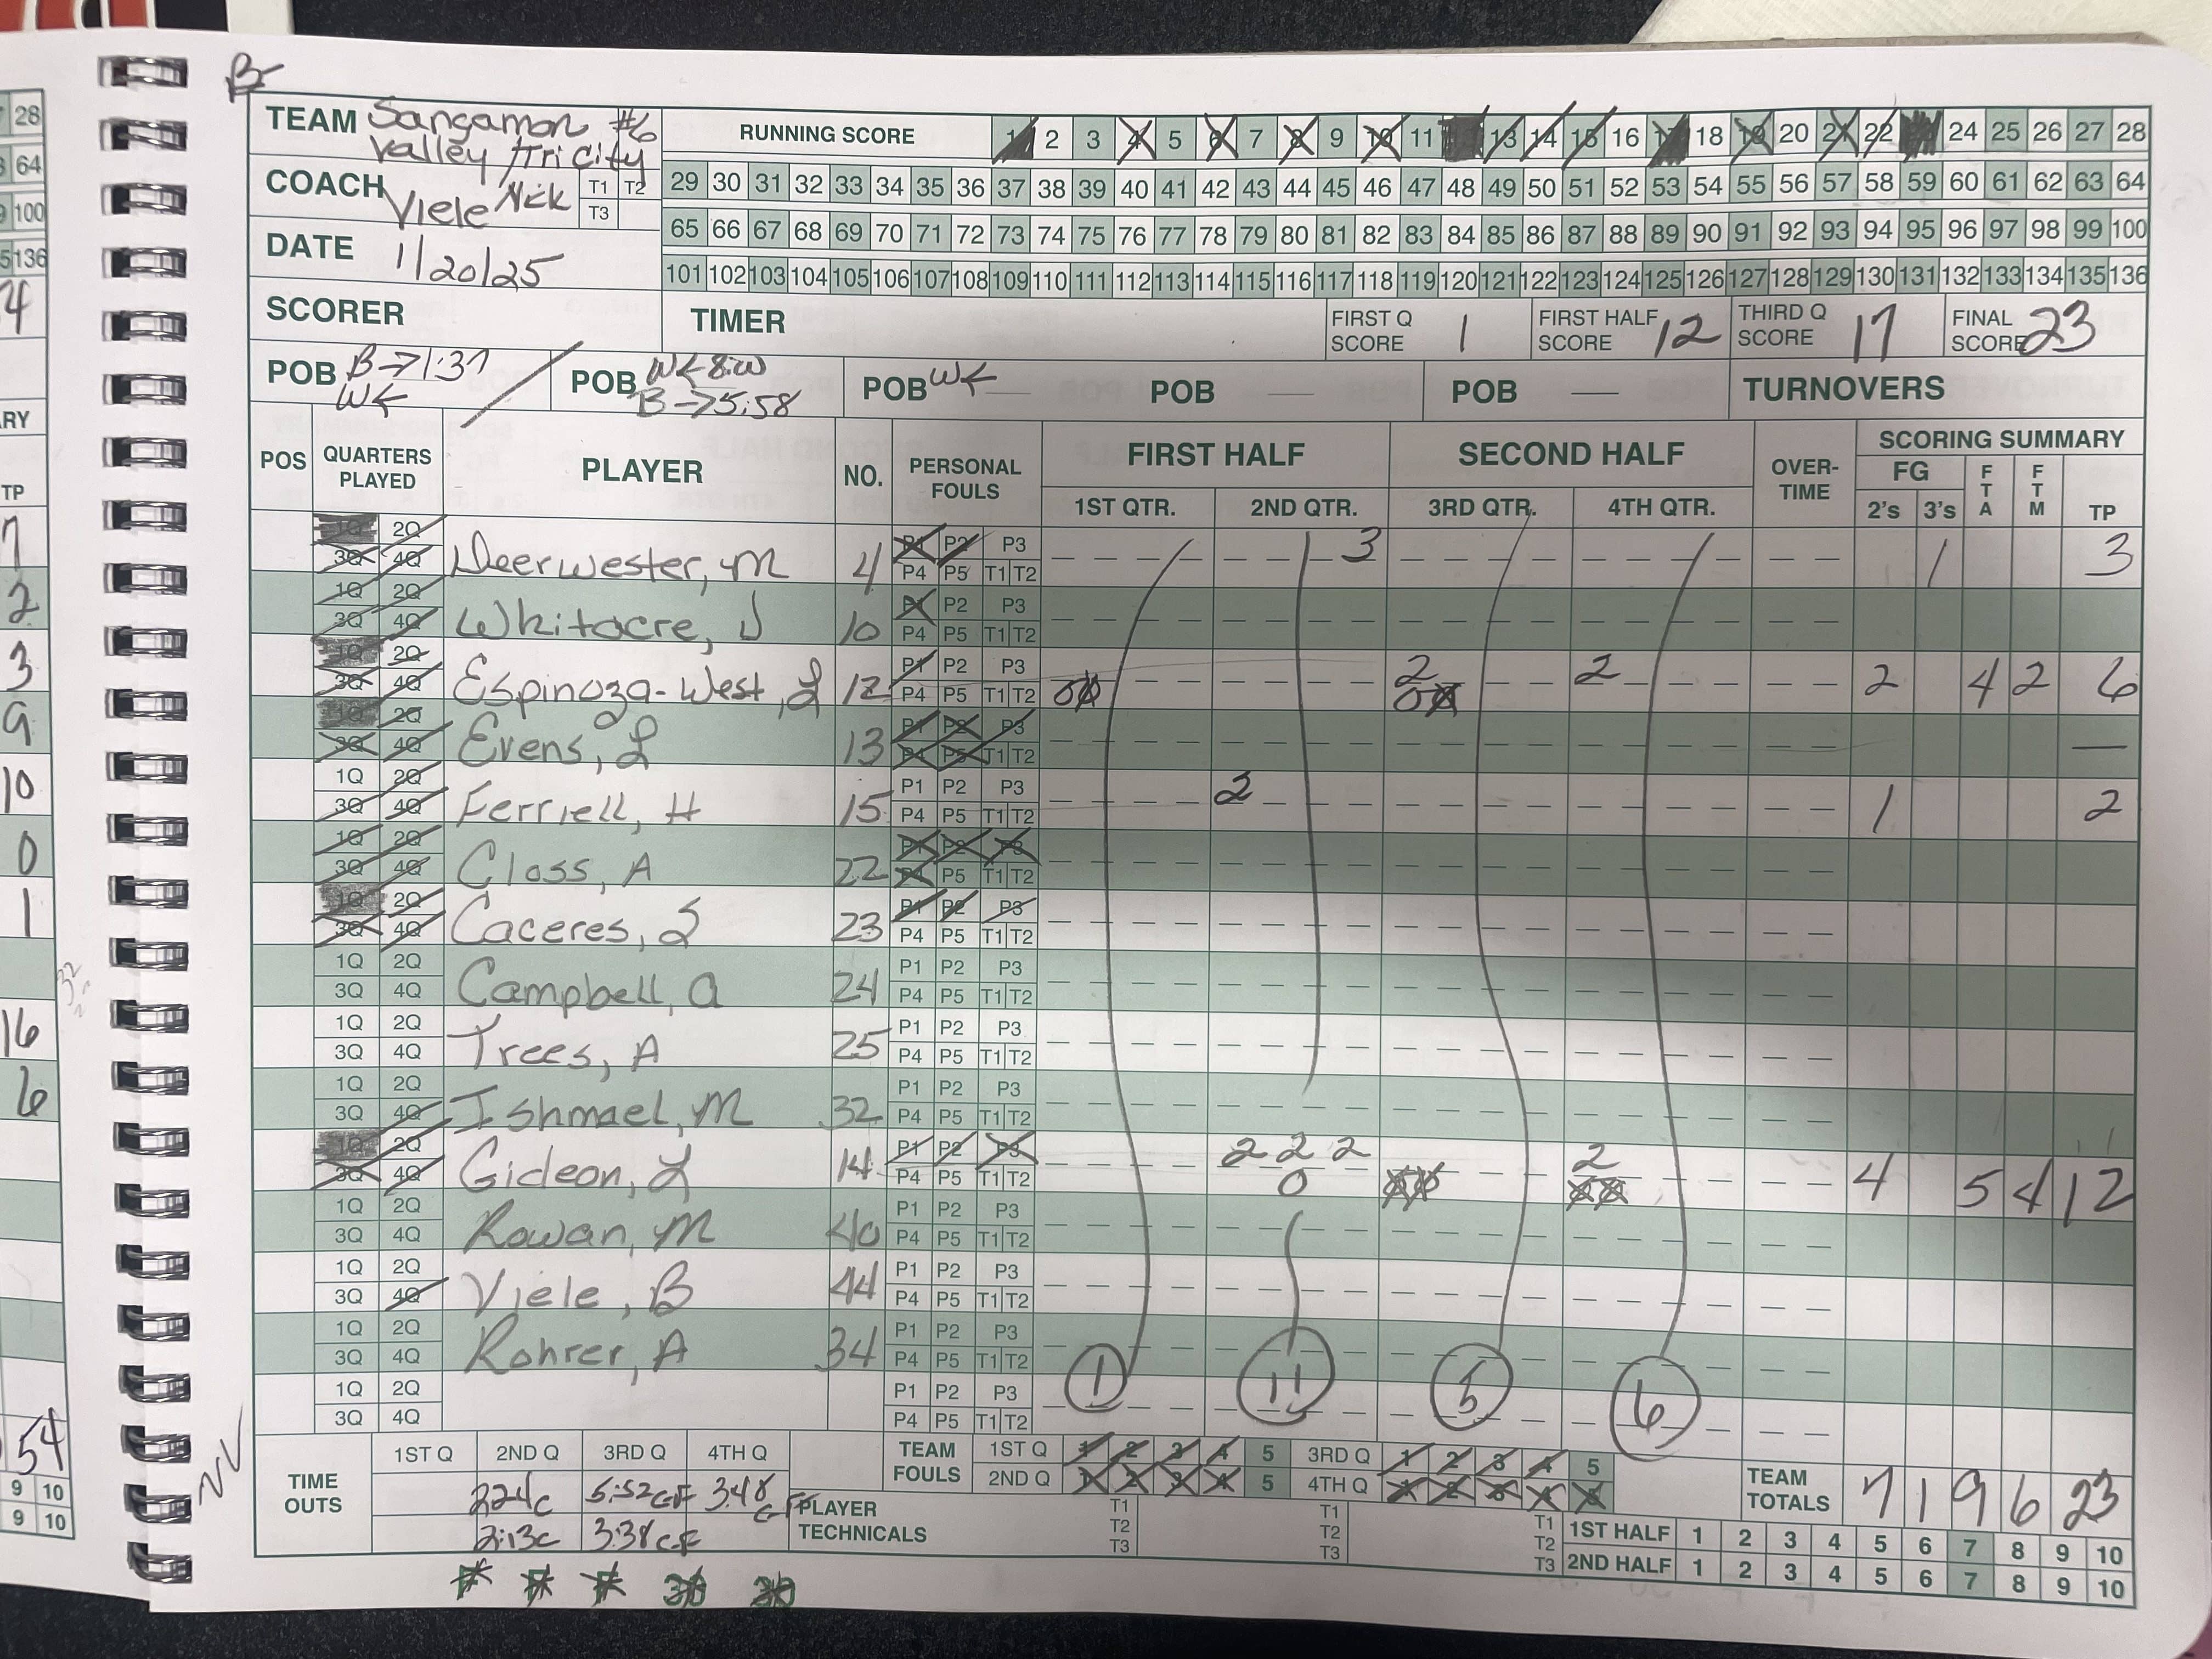 B
TEAM Sangamon #6
Valley /Tri City
RUNNING SCORE 1 2 3 4 5 6 7 8 9 10 11 13 14 15 16 17 18 19 20 21 22 24 25 26 27 28
COACH Viele Nick T1 T2 T3
29 30 31 32 33 34 35 36 37 38 39 40 41 42 43 44 45 46 47 48 49 50 51 52 53 54 55 56 57 58 59 60 61 62 63 64
65 66 67 68 69 70 71 72 73 74 75 76 77 78 79 80 81 82 83 84 85 86 87 88 89 90 91 92 93 94 95 96 97 98 99 100
DATE 1/20/25
101 102 103 104 105 106 107 108 109 110 111 112 113 114 115 116 117 118 119 120 121 122 123 124 125 126 127 128 129 130 131 132 133 134 135 136
SCORER TIMER FIRST Q SCORE 1 FIRST HALF SCORE 12 THIRD Q SCORE 17 FINAL SCORE 23
POB B→1:37 W← POB W←8:00 B→5:58 POB W← — POB — POB — TURNOVERS
POS QUARTERS PLAYED PLAYER NO. PERSONAL FOULS FIRST HALF SECOND HALF OVER-TIME SCORING SUMMARY
1ST QTR. 2ND QTR. 3RD QTR. 4TH QTR. FG 2's 3's FTA FTM TP
1Q 2Q 3Q 4Q Deerwester, M 4 P1 P2 P3 P4 P5 T1 T2 3 1 3
1Q 2Q 3Q 4Q Whitacre, J 10 P1 P2 P3 P4 P5 T1 T2
1Q 2Q 3Q 4Q Espinoza-West, L 12 P1 P2 P3 P4 P5 T1 T2 2 2 2 4 2 6
1Q 2Q 3Q 4Q Evens, L 13 P1 P2 P3 P4 P5 T1 T2 —
1Q 2Q 3Q 4Q Ferriell, H 15 P1 P2 P3 P4 P5 T1 T2 2 1 2
1Q 2Q 3Q 4Q Closs, A 22 P1 P2 P3 P4 P5 T1 T2
1Q 2Q 3Q 4Q Caceres, S 23 P1 P2 P3 P4 P5 T1 T2
1Q 2Q 3Q 4Q Campbell, A 24 P1 P2 P3 P4 P5 T1 T2
1Q 2Q 3Q 4Q Trees, A 25 P1 P2 P3 P4 P5 T1 T2
1Q 2Q 3Q 4Q Ishmael, M 32 P1 P2 P3 P4 P5 T1 T2
1Q 2Q 3Q 4Q Gideon, L 14 P1 P2 P3 P4 P5 T1 T2 2 2 2 0 2 4 5 4 12
1Q 2Q 3Q 4Q Rowan, M 40 P1 P2 P3 P4 P5 T1 T2
1Q 2Q 3Q 4Q Viele, B 44 P1 P2 P3 P4 P5 T1 T2
1Q 2Q 3Q 4Q Rohrer, A 34 P1 P2 P3 P4 P5 T1 T2
1Q 2Q 3Q 4Q P1 P2 P3 P4 P5 T1 T2 1 11 5 6
TIME OUTS 1ST Q 2ND Q 3RD Q 4TH Q TEAM FOULS 1ST Q 1 2 3 4 5 3RD Q 1 2 3 4 5
2:24c 5:52 GF 3:48 GF 2ND Q 1 2 3 4 5 4TH Q 1 2 3 4 5 TEAM TOTALS 7 1 9 6 23
2:13c 3:38 GF PLAYER TECHNICALS T1 T2 T3 T1 T2 T3 T1 T2 T3
1ST HALF 1 2 3 4 5 6 7 8 9 10
2ND HALF 1 2 3 4 5 6 7 8 9 10
F F F 30 30
28
64
100
136
TP
7
2
3
9
10
0
1
16
6
54
9 10
9 10